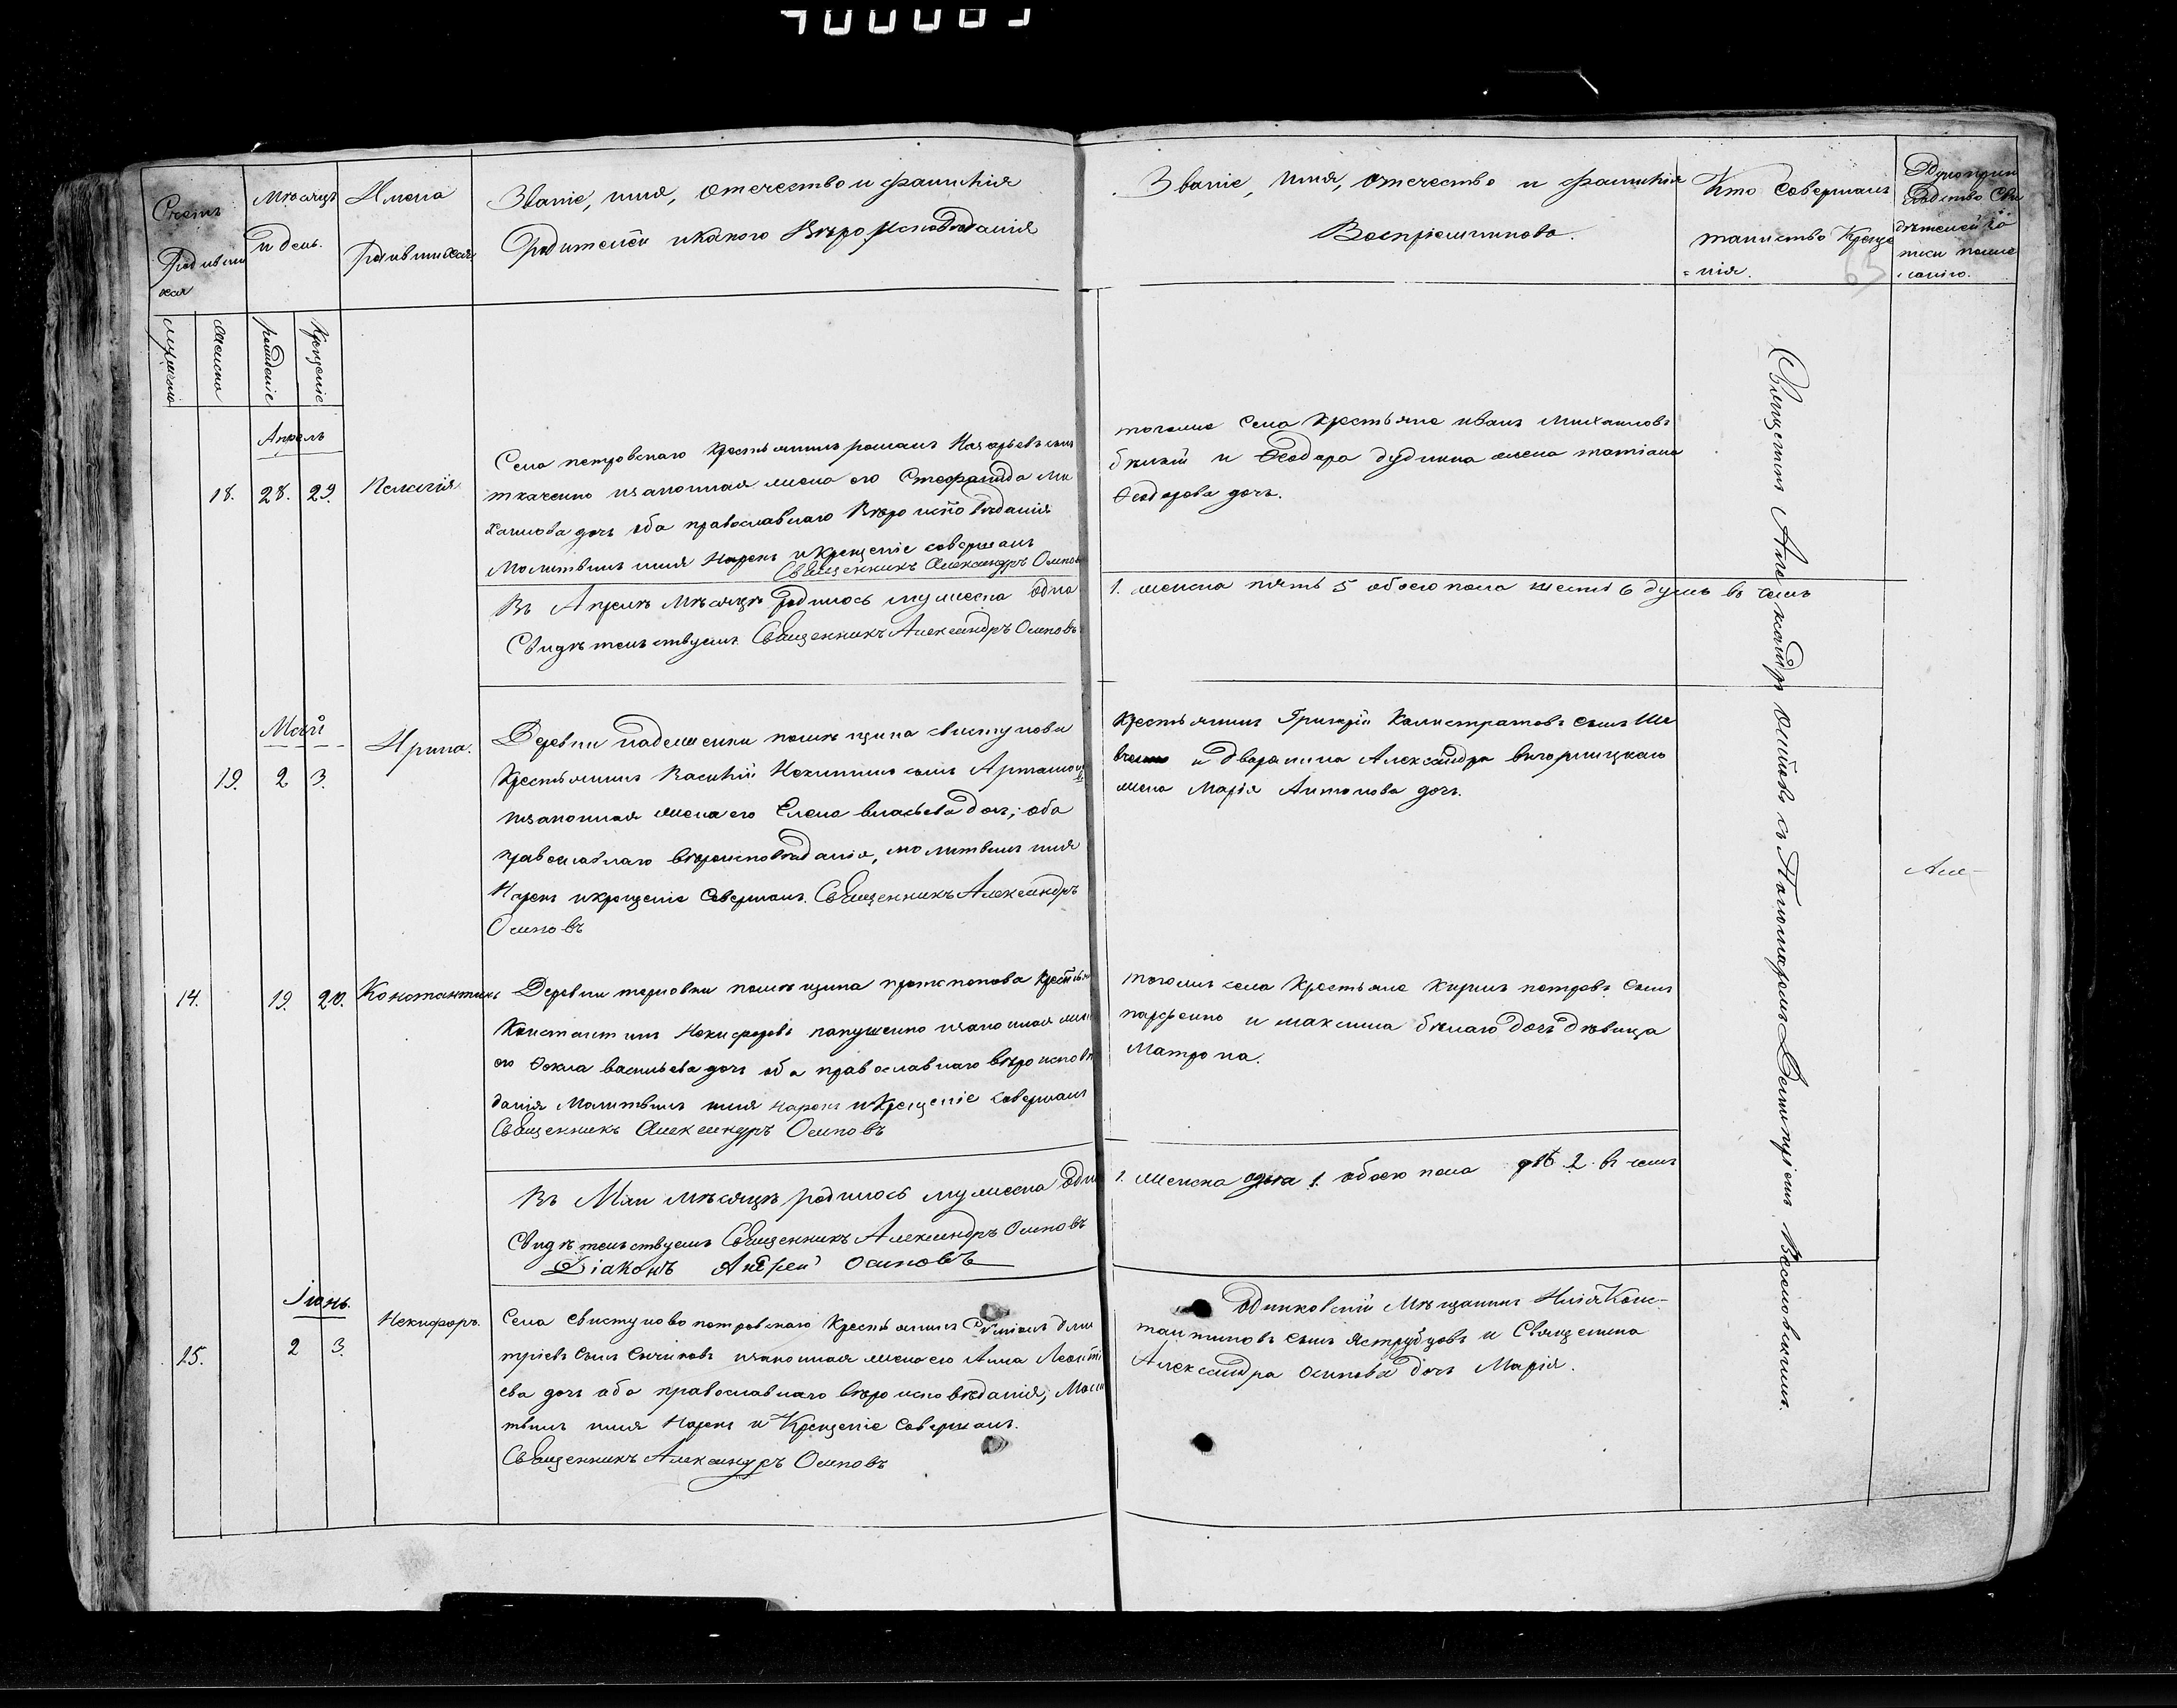 Счетъ
Родивших
ся
Мѣсяцъ
и день.
Имена
родившихся
Званіе, имя, отечество и фамилія
Родителей и какого Вѣроисповѣданія
Званіе, имя, отечество и фамилія
Воспріемниковъ.
Кто совершалъ
таинство Креще
=нія.
Рукоприк
ладство Сви
дѣтелей за
писи по же
ланію.
мужеско
женско
рожденіе
Крещеніе
Апрель
18. 28. 29. Пелагія
Села петровскаго крестьянинъ романъ Назарьевъ сынъ
ткаченко и законная жена его Стефанида Ми
хаилова дочь оба православнаго Вѣроисповѣданія
Молитвилъ имя Нарекъ и Крещеніе совершалъ
Священникъ Александръ Осиповъ
тогоже села крестьяне иванъ михаиловъ
бѣлый и Ѳеодора дудника жена татіана
Ѳеодорова дочь.
Въ Апрелѣ Мѣсяцѣ родилось мужеска одна
1. женска пять 5 обоего пола шесть 6 душъ въ чемъ
Свидѣтельствуемъ Священникъ Александръ Осиповъ
Май
19. 2 3. Ирина.
Деревни надеждевки помѣщика свистунова
Крестьянинъ Василій Никитинъ сынъ
и законная жена его Елена власьева дочь; оба
православнаго вѣроисповѣданія, молитвилъ имя
Нарекъ и крещеніе Совершалъ. Священникъ Александръ
Осиповъ
Крестьянинъ Григорій Калистратовъ сынъ Ше
вченко и дворянина Александра
жена Марія Антонова дочь.
14. 19. 20. Константинъ
Деревни терновки помѣщика протопопова Крестьян
Константинъ Никифоровъ и законная жена
его Ѳекла васильева дочь оба православнаго вѣроисповѣ
данія Молитвилъ имя Нарекъ и Крещеніе Совершалъ
Священникъ Александръ Осиповъ
тогожъ села Крестьяне Кирилъ петровъ Сынъ
парфенко и максима бѣлаго дочь дѣвица
Матрона.
Въ Маи мѣсяцѣ родилось мужеска одна
1. женска одна 1. обоего пола двѣ 2. въ чемъ
Свидѣтельствуемъ Священникъ Александръ Осиповъ
Діаконъ Андрей Осиповъ
Іюнь.
15. 2 3. Никифоръ.
Села Свистуново петровскаго Крестьянинъ дми
тріевъ Сынъ и законная жена его Анна Леонті
ева дочь оба православнаго вѣроисповѣданія, Моли
твилъ имя Нарекъ и Крещеніе Совершалъ.
Священникъ Александръ Осиповъ
Мѣщанинъ Илія Конс-
тантиновъ сынъ Яструбцовъ и Священника
Александра Осипова дочь Марія.
Священникъ Александръ Осиповъ съ Пономаремъ Весоловскимъ.
Але-